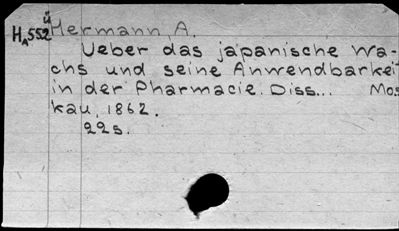 ü
HA552 Hermann, A.
Ueber das japanische Wa-
chs und seine Anwendbarkeit
in der Pharmacie. Diss... Mos
kau, 1862.
22s.